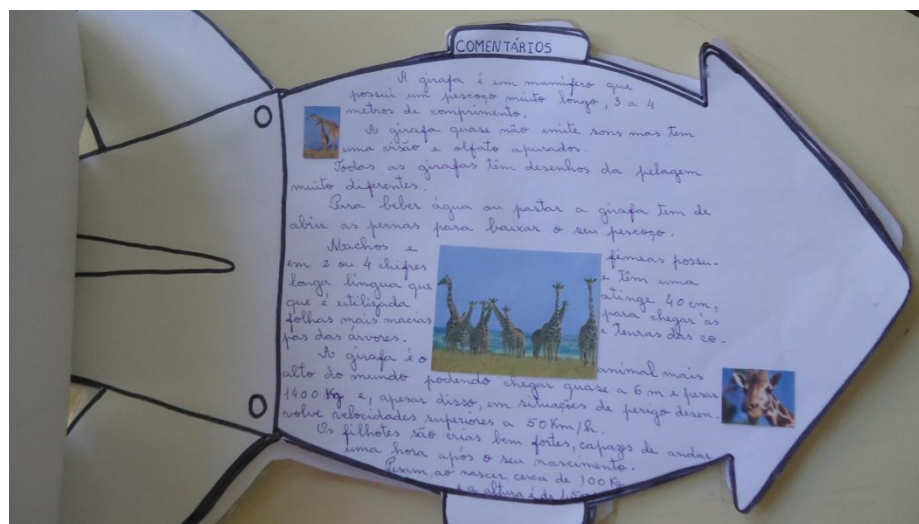 COMENTÁRIOS
A girafa é um mamífero que
possui um pescoço muito longo, 3 a 4
metros de comprimento.
A girafa quase não emite sons mas tem
uma visão e olfato apurados.
Todas as girafas têm desenhos da pelagem
muito diferentes.
Para beber água ou pastar a girafa tem de
abrir as pernas para baixar o seu pescoço.
Machos e fêmeas possu-
em 2 ou 4 chifres e têm uma
longa língua que atinge 40 cm,
que é utilizada para chegar às
folhas mais macias e tenras das co-
pas das árvores.
A girafa é o animal mais
alto do mundo podendo chegar quase a 6 m e pesar
1400 Kg e, apesar disso, em situações de perigo desen-
volve velocidades superiores a 50 Km/h.
Os filhotes são crias bem fortes, capazes de andar
uma hora após o seu nascimento.
Pesam, ao nascer, cerca de 100 Kg
e a altura é de 1,5